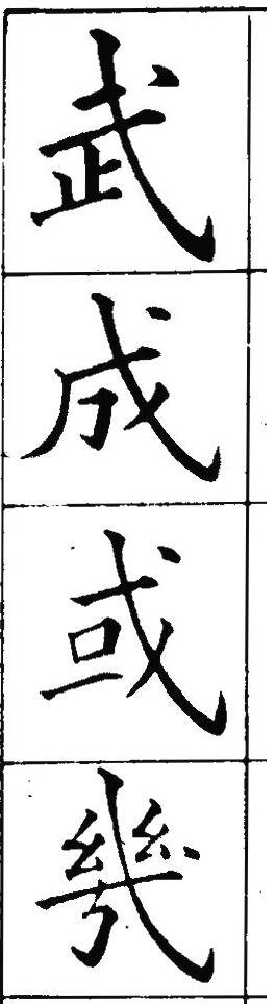 武成或幾